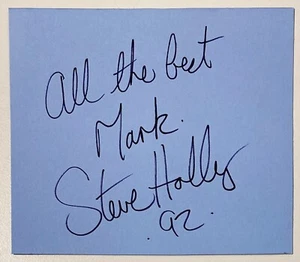 All the best
Mark.
Steve Holly
.92.